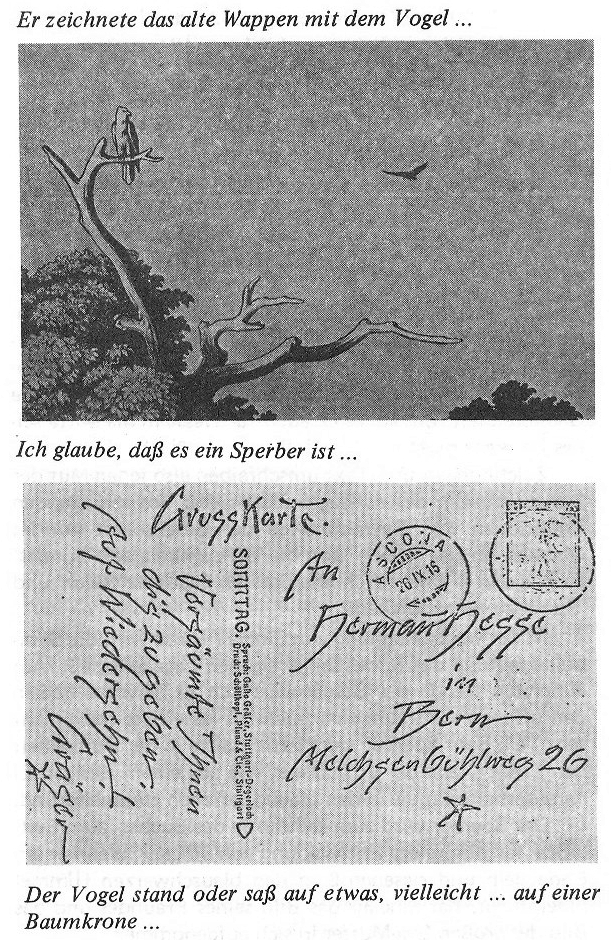 Er zeichnete das alte Wappen mit dem Vogel ...
Ich glaube, daß es ein Sperber ist ...
GrussKarte.
Versäumte Ihnen
dies zu geben.
Auf Wiedersehn!
Gräser
SONNTAG.
Spruch: Gusto Gräfer, Stuttgart-Degerloch
Druck: Schöllkopf, Pfund & Cie., Stuttgart
ASCONA
20.IX.16
An
Herman Hesse
in
Bern
Melchsenbühlweg 26
Der Vogel stand oder saß auf etwas, vielleicht ... auf einer
Baumkrone ...